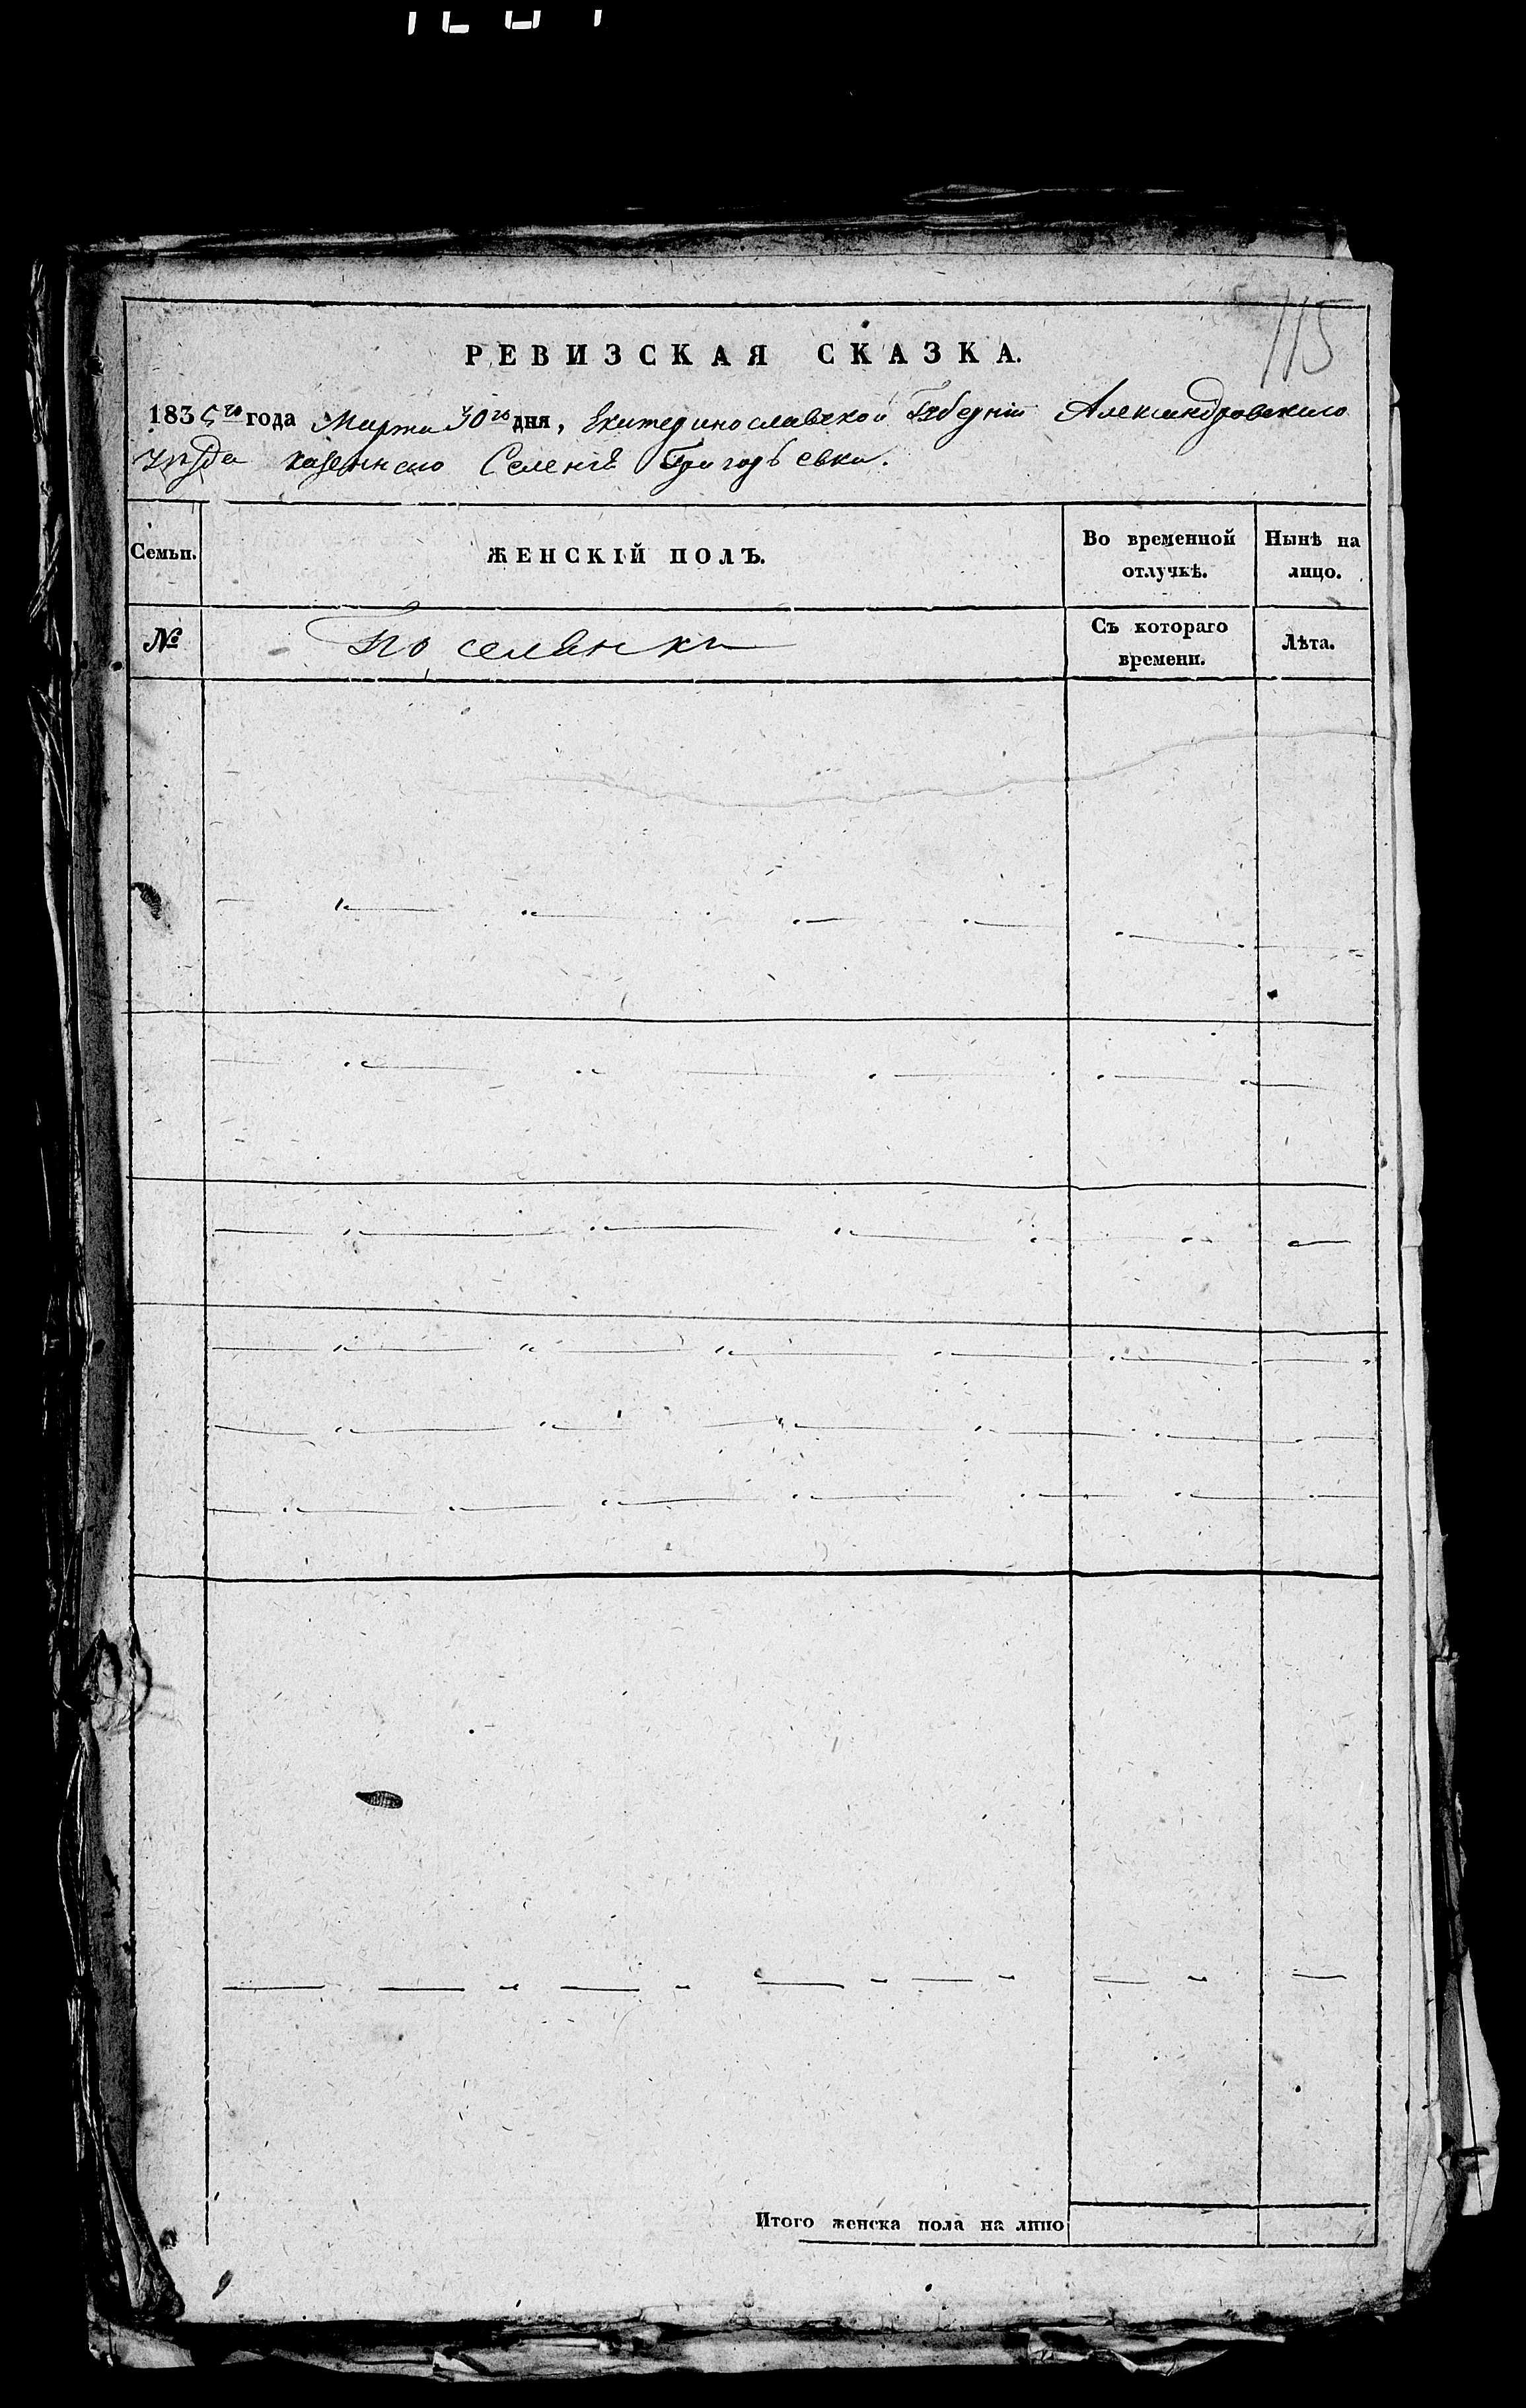 115
РЕВИЗСКАЯ СКАЗКА.
1835го года Марта 30го дня, Екатеринославской Губерніи Александровскаго
уѣзда казеннаго Селенія Григорьевки.
Семьи. ЖЕНСКІЙ ПОЛЪ. Во временной отлучкѣ. Нынѣ на лицо.
№ Поселянки Съ котораго времени. Лѣта.
Итого женска пола на лицо